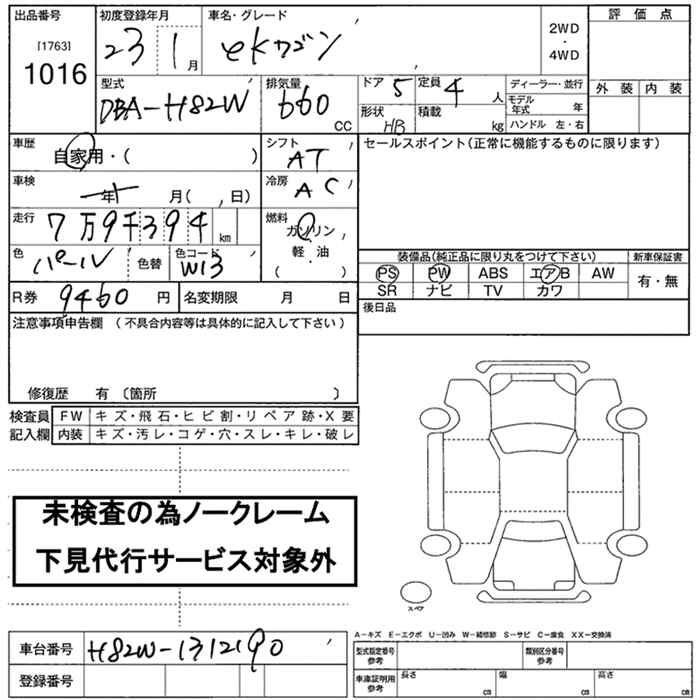 出品番号 初度登録年月 車名・グレード 評価点
[1763] 1016 23 1月 eKワゴン 2WD・4WD
型式 排気量 ドア 5 定員 4人 ディーラー・並行 外装 内装
DBA-H82W 660cc 形状 HB 積載 kg モデル年式 年
ハンドル 左・右
車歴 自家用・( ) シフト AT セールスポイント(正常に機能するものに限ります)
車検 年 月( , 日) 冷房 AC
走行 7万9千394km 燃料 ガソリン・軽油 ( )
色 パール 色替 色コード W13 装備品(純正品に限り丸をつけて下さい) 新車保証書
PS PW ABS エアB AW 有・無
SR ナビ TV カワ
R券 9460円 名変期限 月 日 後日品
注意事項申告欄 (不具合内容等は具体的に記入して下さい)
修復歴 有 〔箇所 〕
検査員記入欄 FW キズ・飛石・ヒビ割・リペア跡・X要
内装 キズ・汚レ・コゲ・穴・スレ・キレ・破レ
未検査の為ノークレーム
下見代行サービス対象外
スペア
A-キズ E-エクボ U-凹み W-補修跡 S-サビ C-腐食 XX-交換済
車台番号 H82W-1312190 型式指定番号参考 類別区分番号参考
登録番号 車庫証明用参考 長さ cm 幅 cm 高さ cm